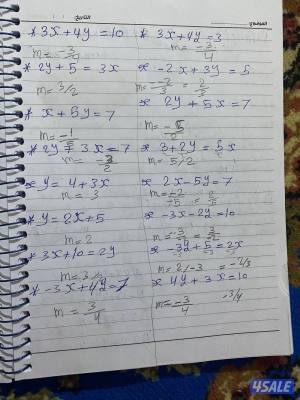 * 3x + 4y = 10
m = -3/4
* 2y + 5 = 3x
m = 3/2
* x + 5y = 7
m = -1/5
* 2y + 3x = 7
m = -3/2
* y = 4 + 3x
m = 3
* y = 2x + 5
m = 2
* 3x + 10 = 2y
m = 3
* -3x + 4y = 7
m = 3/4
* 3x + 4y = 3
m = -3/4
* -2x + 3y = 5
m = -2/-3 = 2/3
* 2y + 5x = 7
m = -5/2
* 3 + 2y = 5x
m = 5/2
* 2x - 5y = 7
m = -2/-5 = 2/5
* -3x - 2y = 10
* -3y + 5 = 2x
m = 2/-3 = -2/3
* 4y + 3x = 10
m = -3/4 -3/4
4SALE